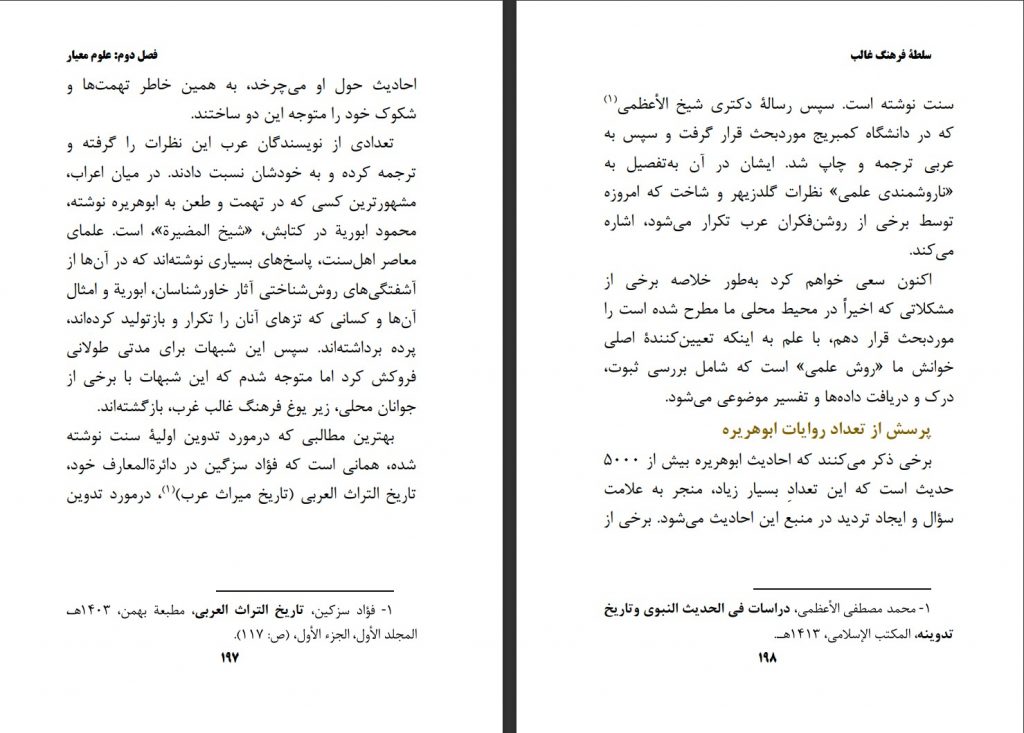 فصل دوم: علوم معیار
احادیث حول او می‌چرخد، به همین خاطر تهمت‌ها و
شکوک خود را متوجه این دو ساختند.
تعدادی از نویسندگان عرب این نظرات را گرفته و
ترجمه کرده و به خودشان نسبت دادند. در میان اعراب،
مشهورترین کسی که در تهمت و طعن به ابوهریره نوشته،
محمود ابوریة در کتابش، «شیخ المضیرة»، است. علمای
معاصر اهل‌سنت، پاسخ‌های بسیاری نوشته‌اند که در آن‌ها از
آشفتگی‌های روش‌شناختی آثار خاورشناسان، ابوریة و امثال
آن‌ها و کسانی که تزهای آنان را تکرار و بازتولید کرده‌اند،
پرده برداشته‌اند. سپس این شبهات برای مدتی طولانی
فروکش کرد اما متوجه شدم که این شبهات با برخی از
جوانان محلی، زیر یوغ فرهنگ غالب غرب، بازگشته‌اند.
بهترین مطالبی که درمورد تدوین اولیهٔ سنت نوشته
شده، همانی است که فؤاد سزگین در دائرةالمعارف خود،
تاریخ التراث العربی (تاریخ میراث عرب)(۱)، درمورد تدوین
۱- فؤاد سزکین، تاریخ التراث العربی، مطبعة بهمن، ۱۴۰۳هـ
المجلد الأول، الجزء الأول، (ص: ۱۱۷).
۱۹۷
سلطهٔ فرهنگ غالب
سنت نوشته است. سپس رسالهٔ دکتری شیخ الأعظمی(۱)
که در دانشگاه کمبریج موردبحث قرار گرفت و سپس به
عربی ترجمه و چاپ شد. ایشان در آن به‌تفصیل به
«ناروشمندی علمی» نظرات گلدزیهر و شاخت که امروزه
توسط برخی از روشن‌فکران عرب تکرار می‌شود، اشاره
می‌کند.
اکنون سعی خواهم کرد به‌طور خلاصه برخی از
مشکلاتی که اخیراً در محیط محلی ما مطرح شده است را
موردبحث قرار دهم، با علم به اینکه تعیین‌کنندهٔ اصلی
خوانش ما «روش علمی» است که شامل بررسی ثبوت،
درک و دریافت داده‌ها و تفسیر موضوعی می‌شود.
پرسش از تعداد روایات ابوهریره
برخی ذکر می‌کنند که احادیث ابوهریره بیش از ۵۰۰۰
حدیث است که این تعدادِ بسیار زیاد، منجر به علامت
سؤال و ایجاد تردید در منبع این احادیث می‌شود. برخی از
۱- محمد مصطفی الأعظمی، دراسات فی الحدیث النبوی وتاریخ
تدوینه، المکتب الإسلامی، ۱۴۱۳هـ.
۱۹۸